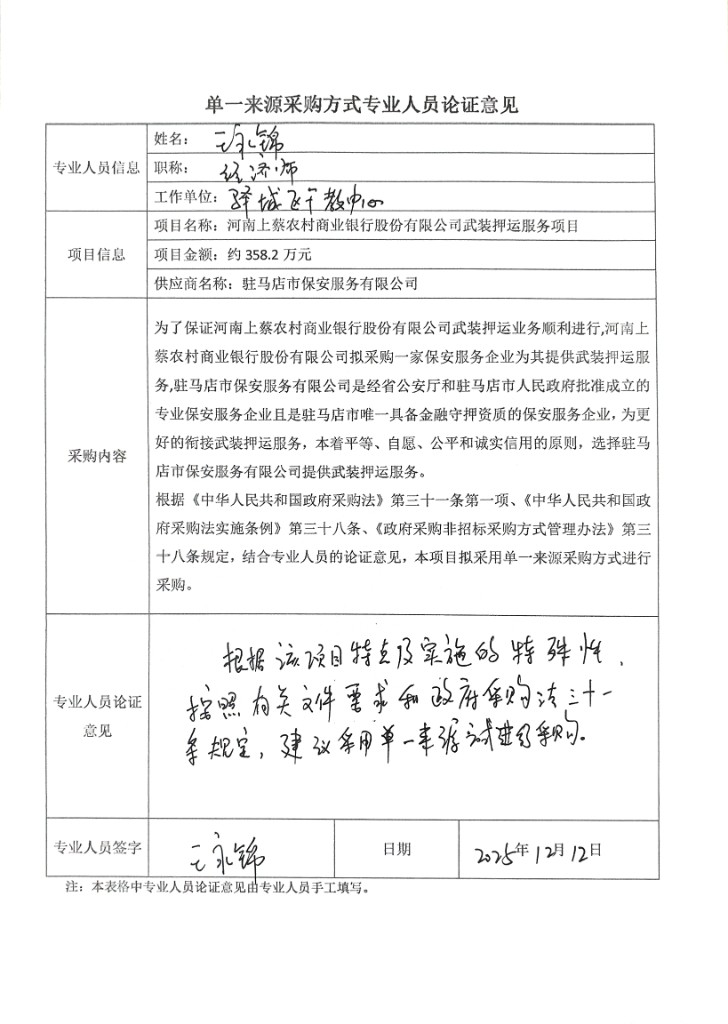 单一来源采购方式专业人员论证意见
专业人员信息
姓名：王永锦
职称：经济师
工作单位：驿城区干教中心
项目信息
项目名称：河南上蔡农村商业银行股份有限公司武装押运服务项目
项目金额：约 358.2 万元
供应商名称：驻马店市保安服务有限公司
采购内容
为了保证河南上蔡农村商业银行股份有限公司武装押运业务顺利进行,河南上
蔡农村商业银行股份有限公司拟采购一家保安服务企业为其提供武装押运服
务,驻马店市保安服务有限公司是经省公安厅和驻马店市人民政府批准成立的
专业保安服务企业且是驻马店市唯一具备金融守押资质的保安服务企业，为更
好的衔接武装押运服务，本着平等、自愿、公平和诚实信用的原则，选择驻马
店市保安服务有限公司提供武装押运服务。
根据《中华人民共和国政府采购法》第三十一条第一项、《中华人民共和国政
府采购法实施条例》第三十八条、《政府采购非招标采购方式管理办法》第三
十八条规定，结合专业人员的论证意见，本项目拟采用单一来源采购方式进行
采购。
专业人员论证
意见
根据该项目特点及实施的特殊性，
按照有关文件要求和政府采购法三十一
条规定，建议采用单一来源方式进行采购。
专业人员签字
王永锦
日期
2025年12月12日
注：本表格中专业人员论证意见由专业人员手工填写。